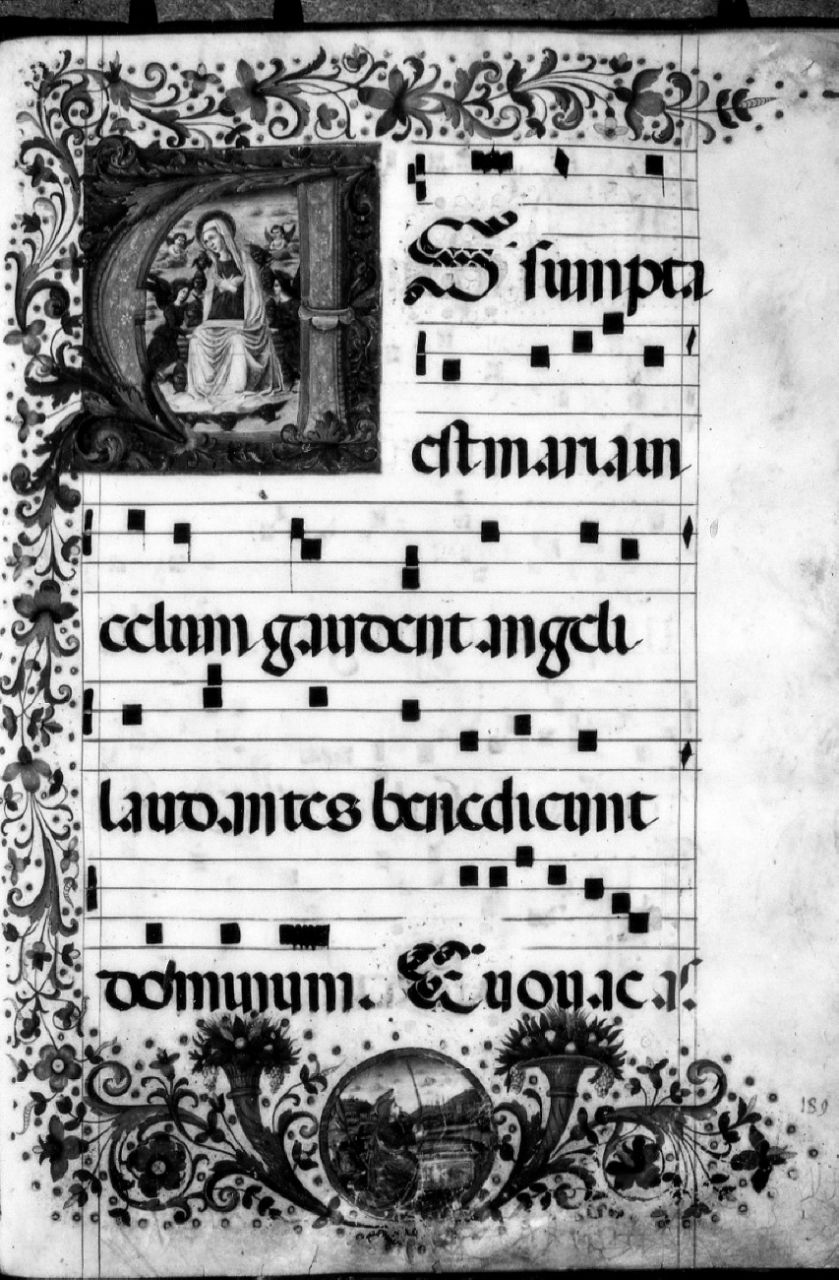 AS sumpta
est maria in
celum gaudent angeli
laudantes benedicunt
dominum. Euouae. a.
189